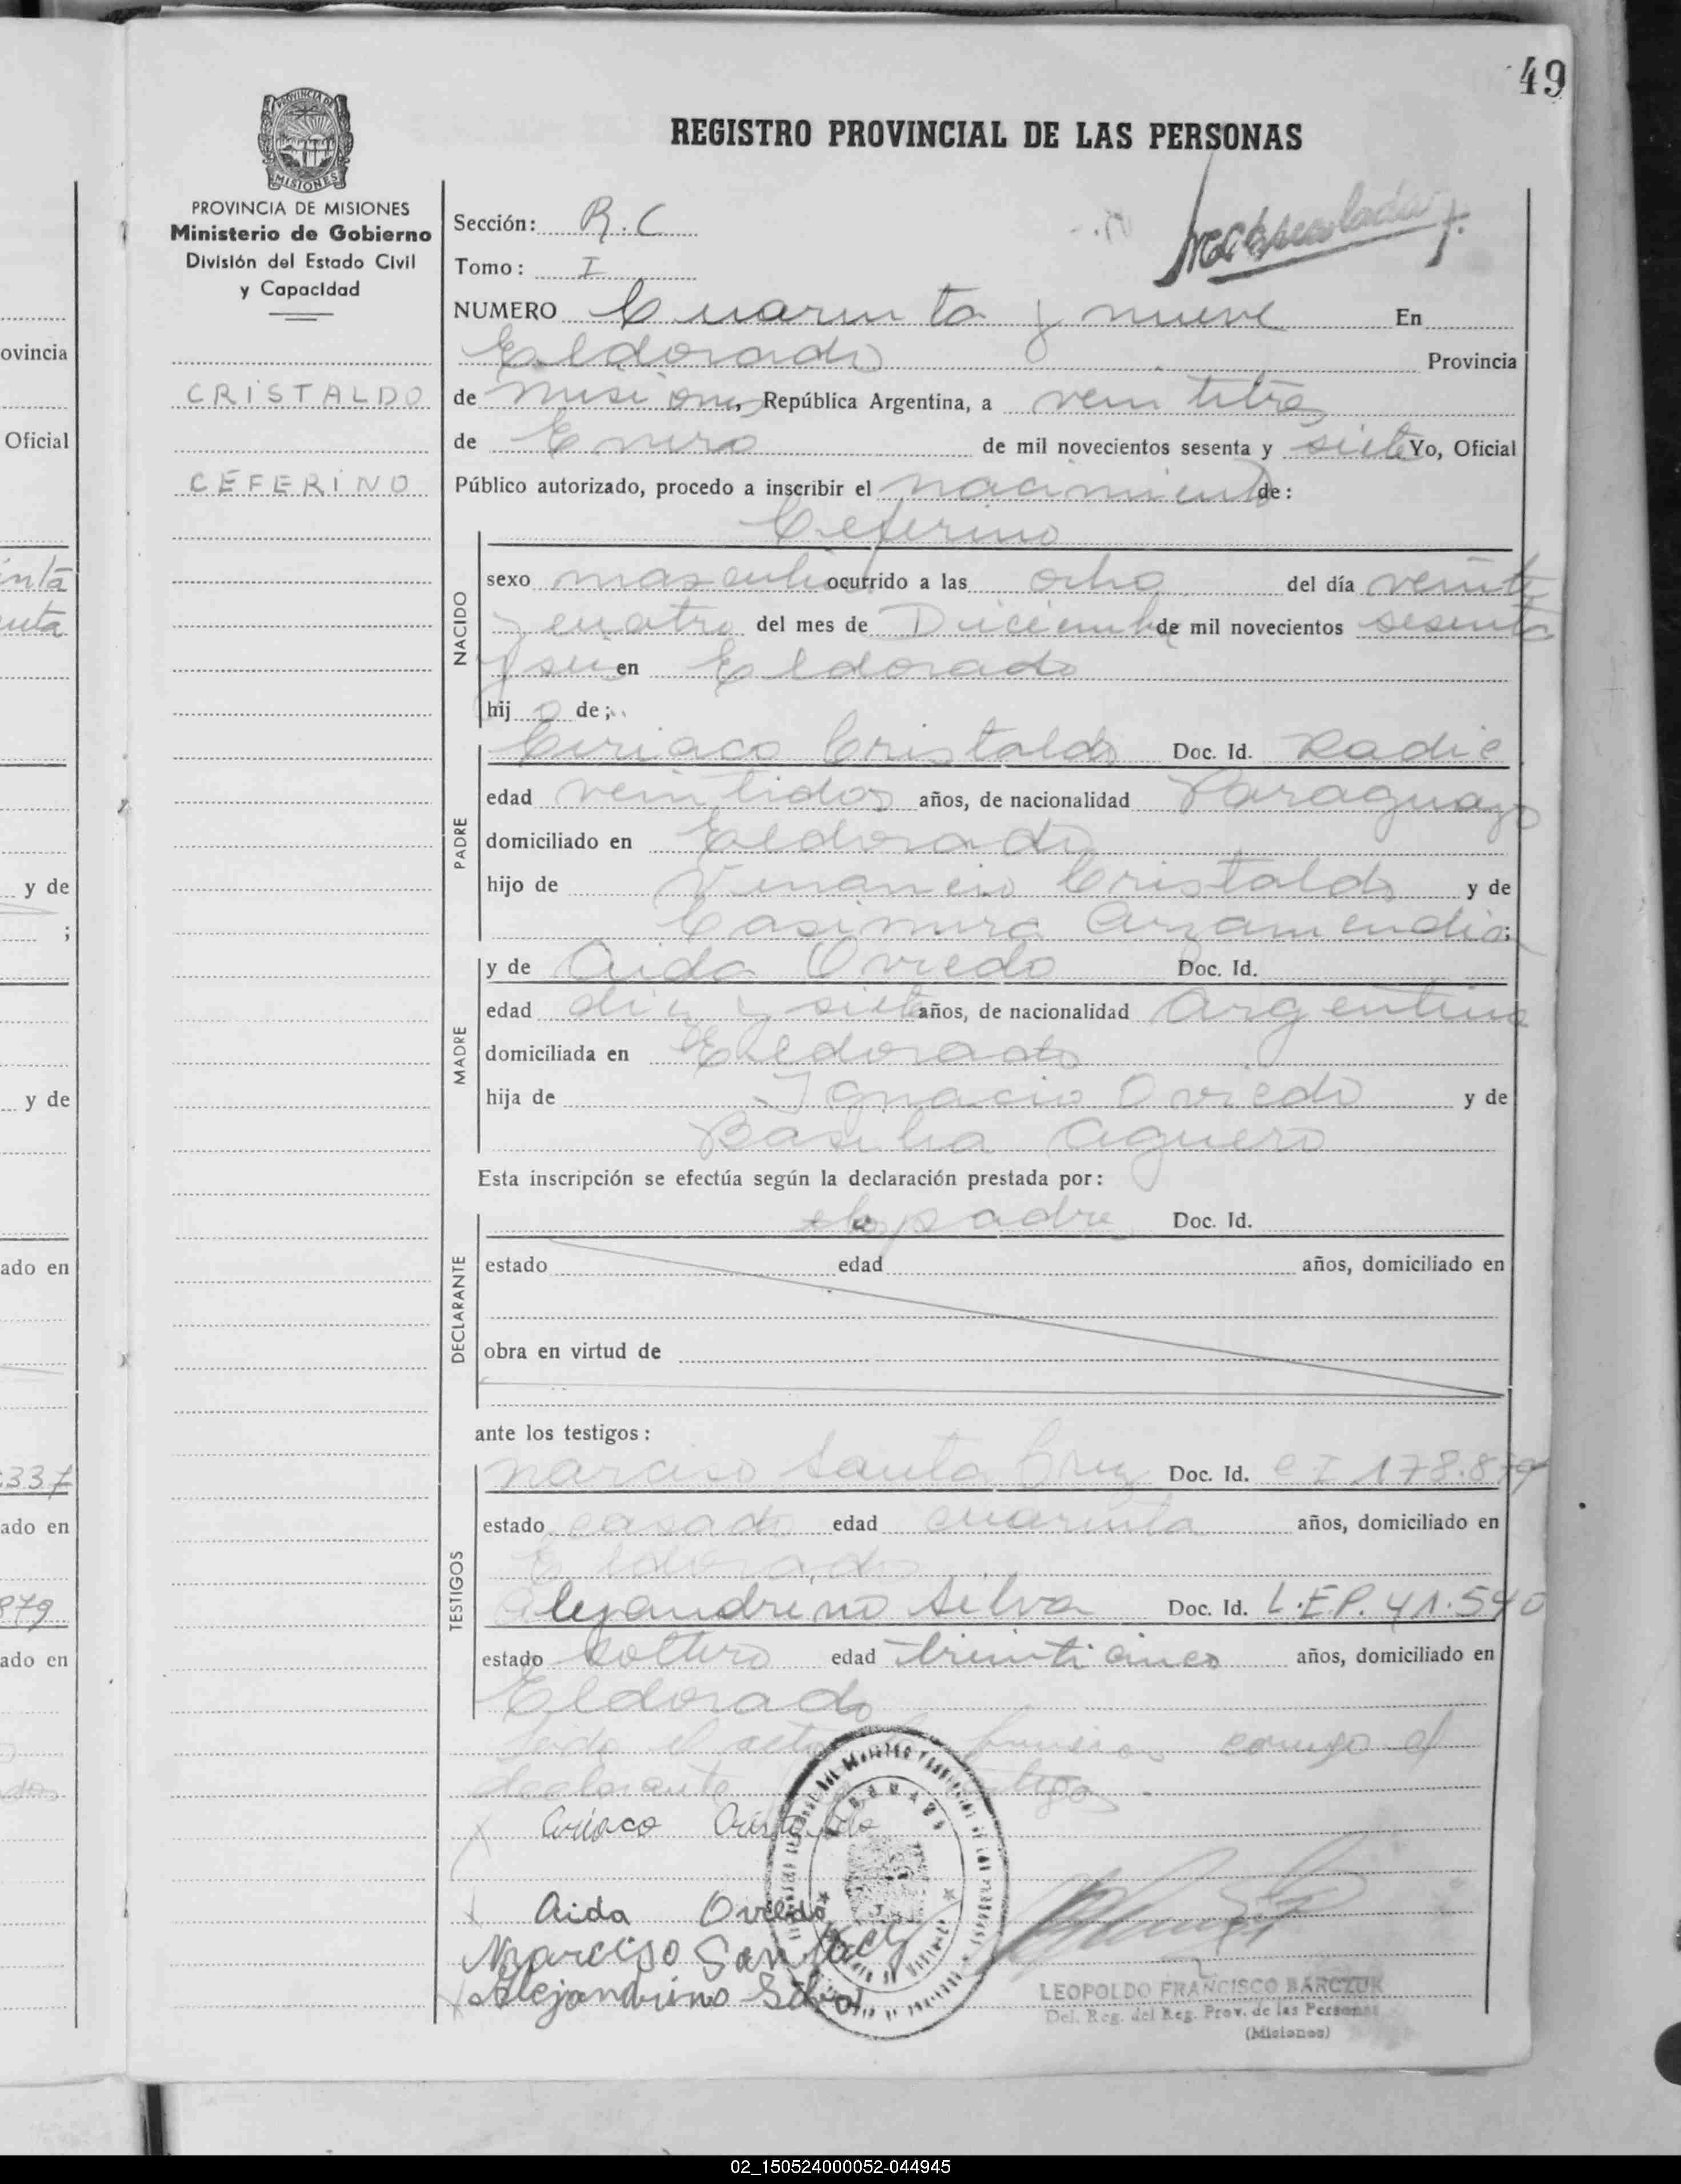 49
REGISTRO PROVINCIAL DE LAS PERSONAS
PROVINCIA DE MISIONES
MISIONES
PROVINCIA DE MISIONES
Ministerio de Gobierno
División del Estado Civil
y Capacidad
CRISTALDO
CEFERINO
Sección: R.C
Tomo: I
NUMERO Cuarenta y nueve En
Eldorado Provincia
de Misiones, República Argentina, a veintitres
de Enero de mil novecientos sesenta y siete Yo, Oficial
Público autorizado, procedo a inscribir el nacimiento de:
Ceferino
NACIDO
sexo masculino ocurrido a las ocho del día veinte
y cuatro del mes de Diciembre de mil novecientos sesenta
y seis en Eldorado
hijo de;
PADRE
Ciriaco Cristaldo Doc. Id. Radic
edad veintidos años, de nacionalidad Paraguayo
domiciliado en Eldorado
hijo de Venancio Cristaldo y de
Casimira Arzamendia;
MADRE
y de Aida Oviedo Doc. Id.
edad diez y siete años, de nacionalidad Argentina
domiciliada en Eldorado
hija de Ignacio Oviedo y de
Basilia Aguero
Esta inscripción se efectúa según la declaración prestada por:
DECLARANTE
padre Doc. Id.
estado edad años, domiciliado en
obra en virtud de
ante los testigos:
TESTIGOS
Narciso Santa Cruz Doc. Id. CI 178.879
estado casado edad cuarenta años, domiciliado en
Eldorado
Alejandrino Silva Doc. Id. L.E.P. 41.540
estado soltero edad treinti cinco años, domiciliado en
Eldorado
Leido el acta firman conmigo el
declarante testigos.
Ciriaco Cristaldo
Aida Oviedo
Narciso Santa Cruz
Alejandrino Silva
LEOPOLDO FRANCISCO BARCZUK
Del. Reg. del Reg. Prov. de las Personas
(Misiones)
ovincia
Oficial
y de
;
y de
ado en
337
ado en
879
ado en
02_150524000052-044945